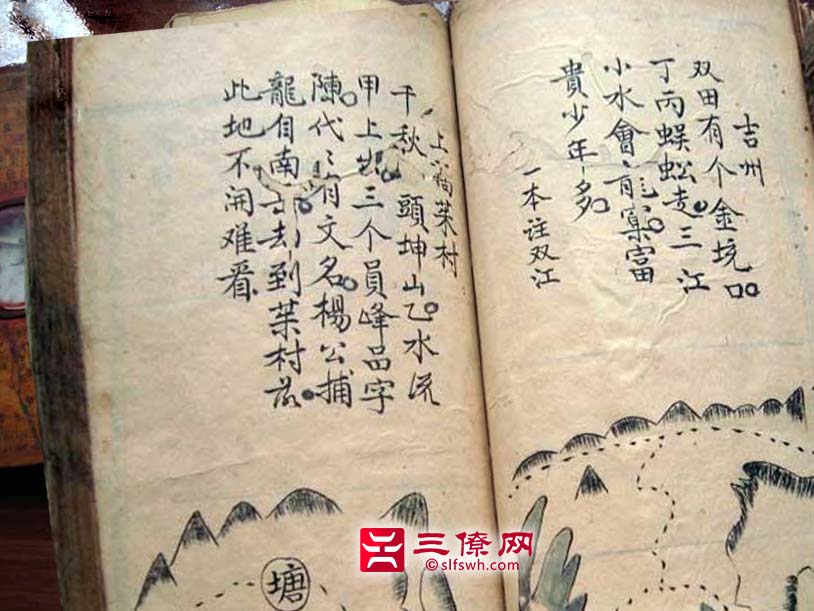 吉州
双田有个金坑口
丁丙蜈蚣走三江
小水會富
貴少年多
一本注双江
上村
千秋頭坤山乙水流
甲上出三个員峰品字
陳代〻有文名楊公捕
龍自南去到村
此地不開难看
塘
三僚网
slfswh.com